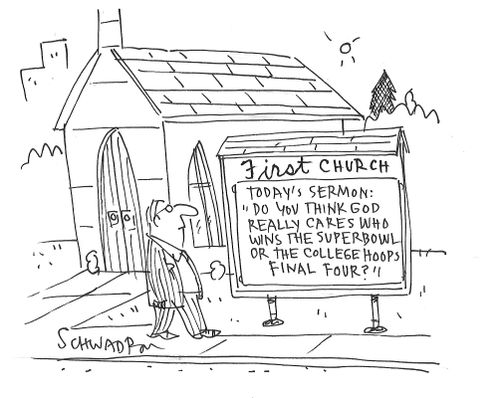 First CHURCH
TODAY'S SERMON:
"DO YOU THINK GOD
REALLY CARES WHO
WINS THE SUPERBOWL
OR THE COLLEGE HOOPS
FINAL FOUR?"
SCHWADRON